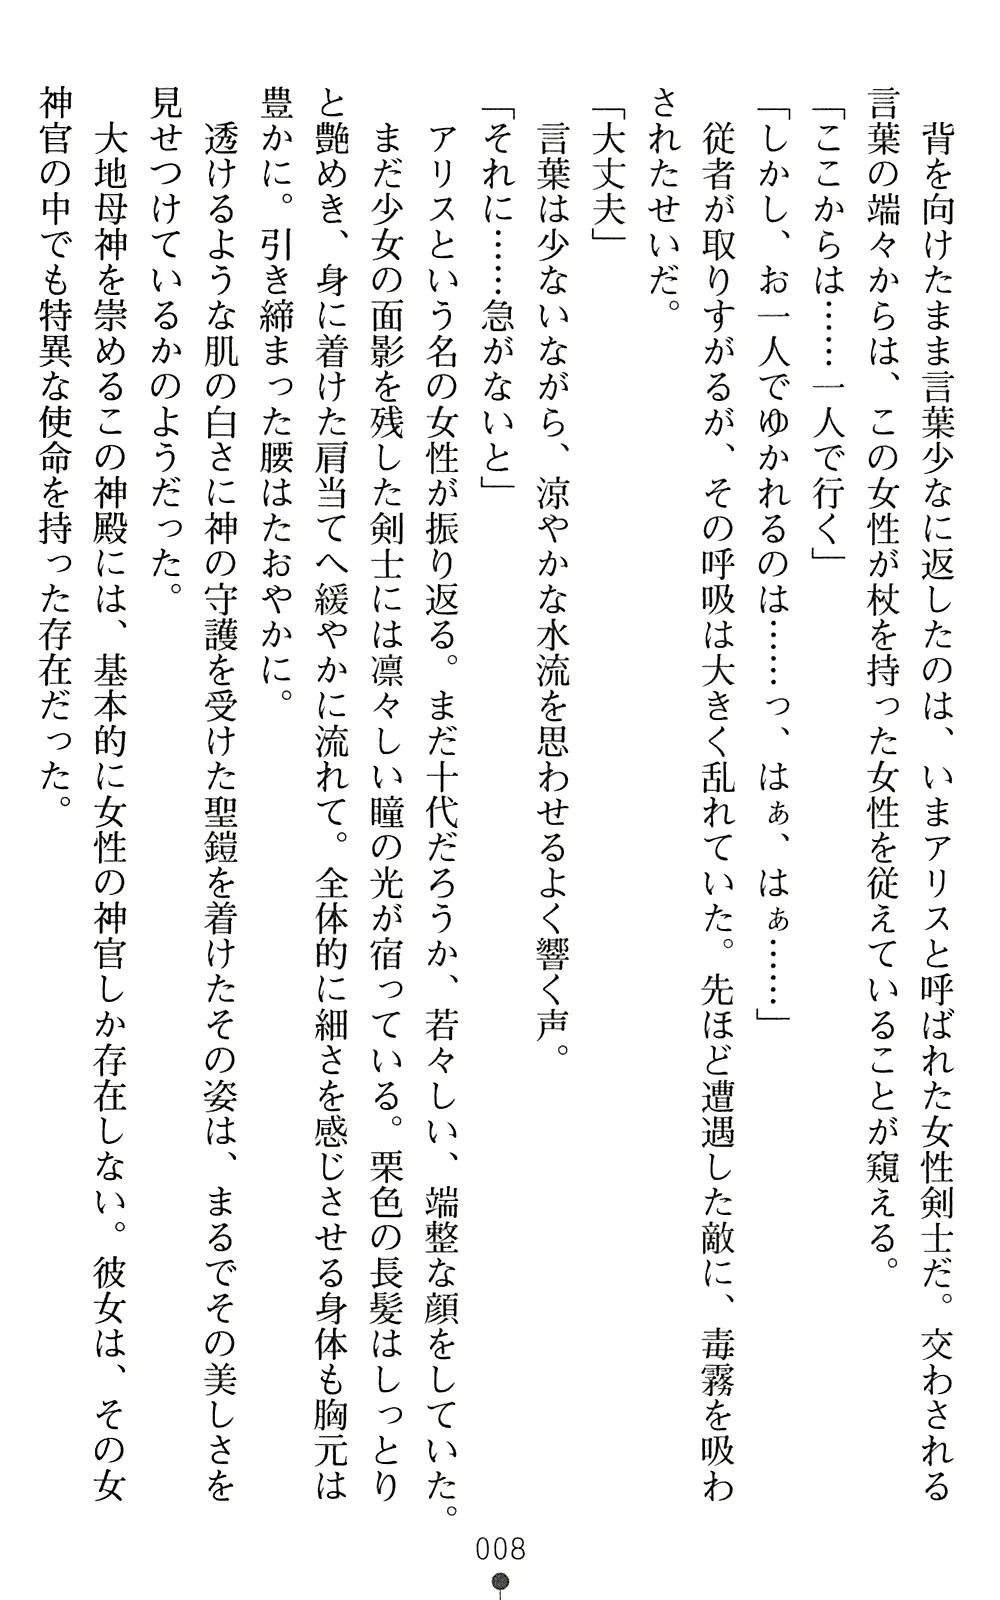 背を向けたまま言葉少なに返したのは、いまアリスと呼ばれた女性剣士だ。交わされる
言葉の端々からは、この女性が杖を持った女性を従えていることが窺える。
「ここからは……一人で行く」
「しかし、お一人でゆかれるのは……っ、はぁ、はぁ……」
　従者が取りすがるが、その呼吸は大きく乱れていた。先ほど遭遇した敵に、毒霧を吸わ
されたせいだ。
「大丈夫」
　言葉は少ないながら、涼やかな水流を思わせるよく響く声。
「それに……急がないと」
　アリスという名の女性が振り返る。まだ十代だろうか、若々しい、端整な顔をしていた。
　まだ少女の面影を残した剣士には凛々しい瞳の光が宿っている。栗色の長髪はしっとり
と艶めき、身に着けた肩当てへ緩やかに流れて。全体的に細さを感じさせる身体も胸元は
豊かに。引き締まった腰はたおやかに。
　透けるような肌の白さに神の守護を受けた聖鎧を着けたその姿は、まるでその美しさを
見せつけているかのようだった。
　大地母神を崇めるこの神殿には、基本的に女性の神官しか存在しない。彼女は、その女
神官の中でも特異な使命を持った存在だった。
008